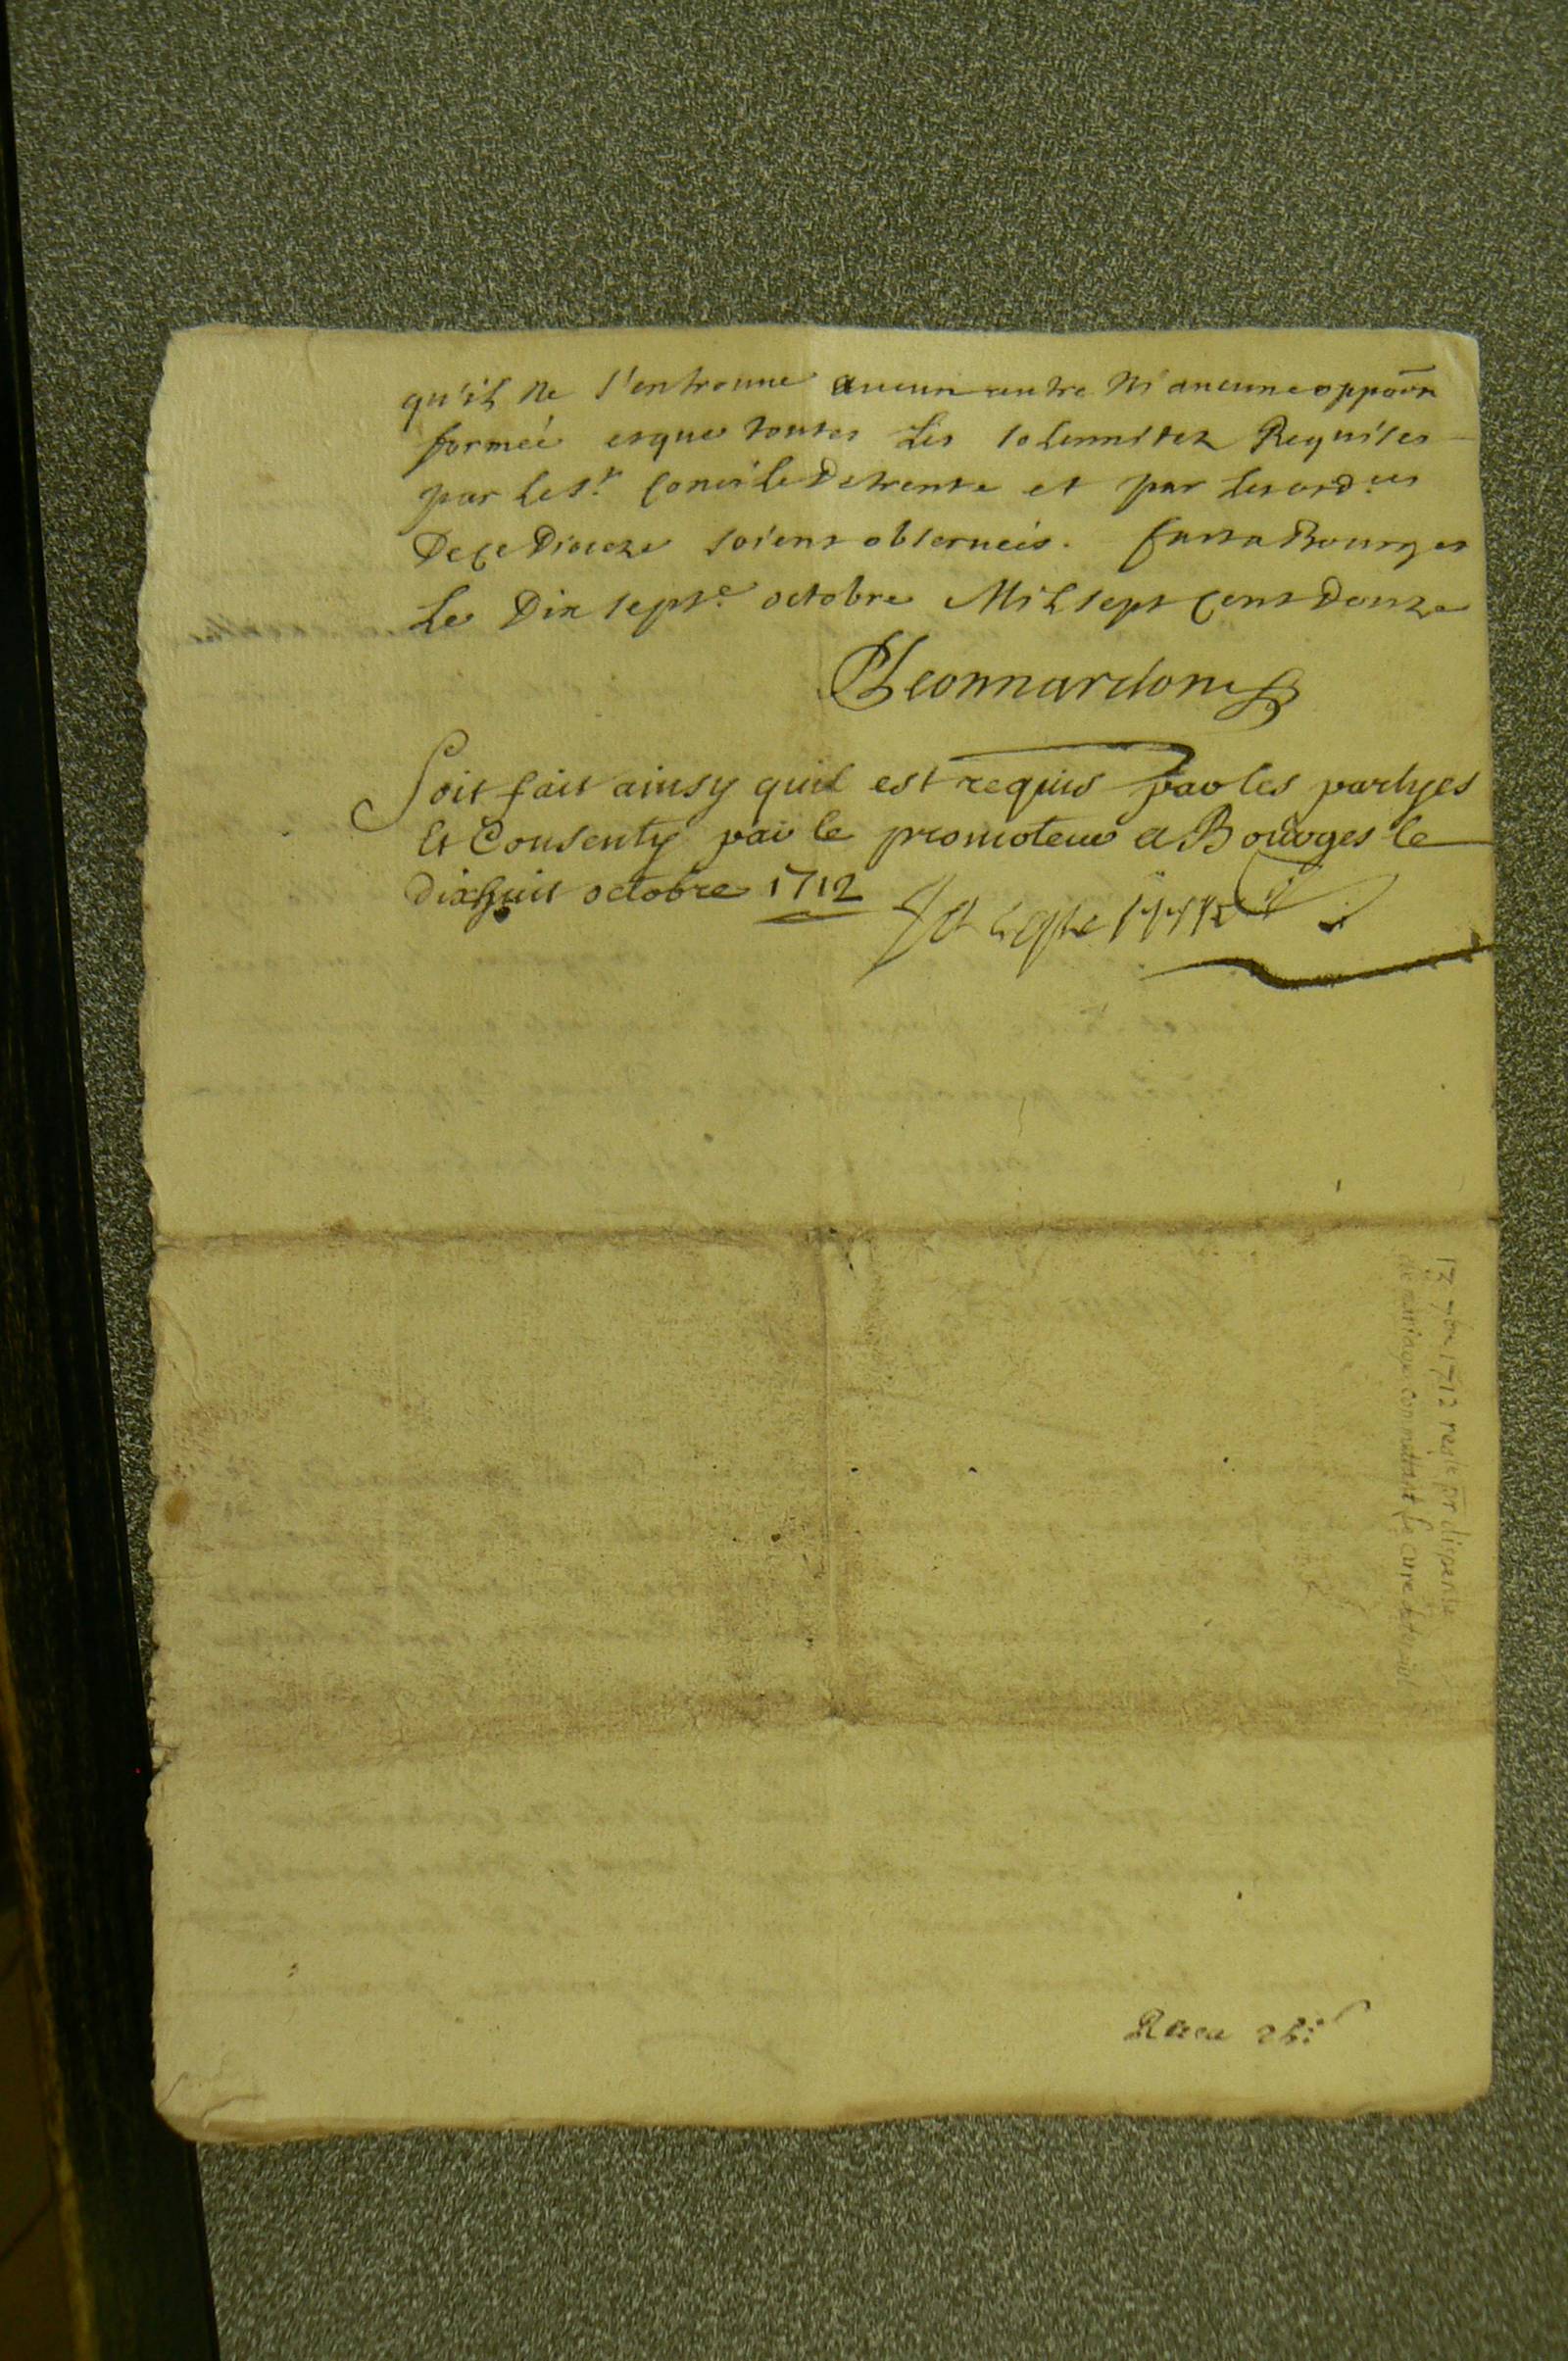 qu'il ne s'en trouve aucun autre ni aucune oppoōn
formeé et que toutes les solemnitez Requises
par le St. Concile de trente et par les ord.ces
De Ce Dioceze soient observeés. fait a Bourges
Le Dix sept.e octobre Mil sept Cent Douze
Leonnardon
Soit fait ainsy quil est requis par les partyes
Et Consenty par le promoteur A Bourges le
dixhuit octobre 1712
17 1712 dispense
de mariage commettant le curé